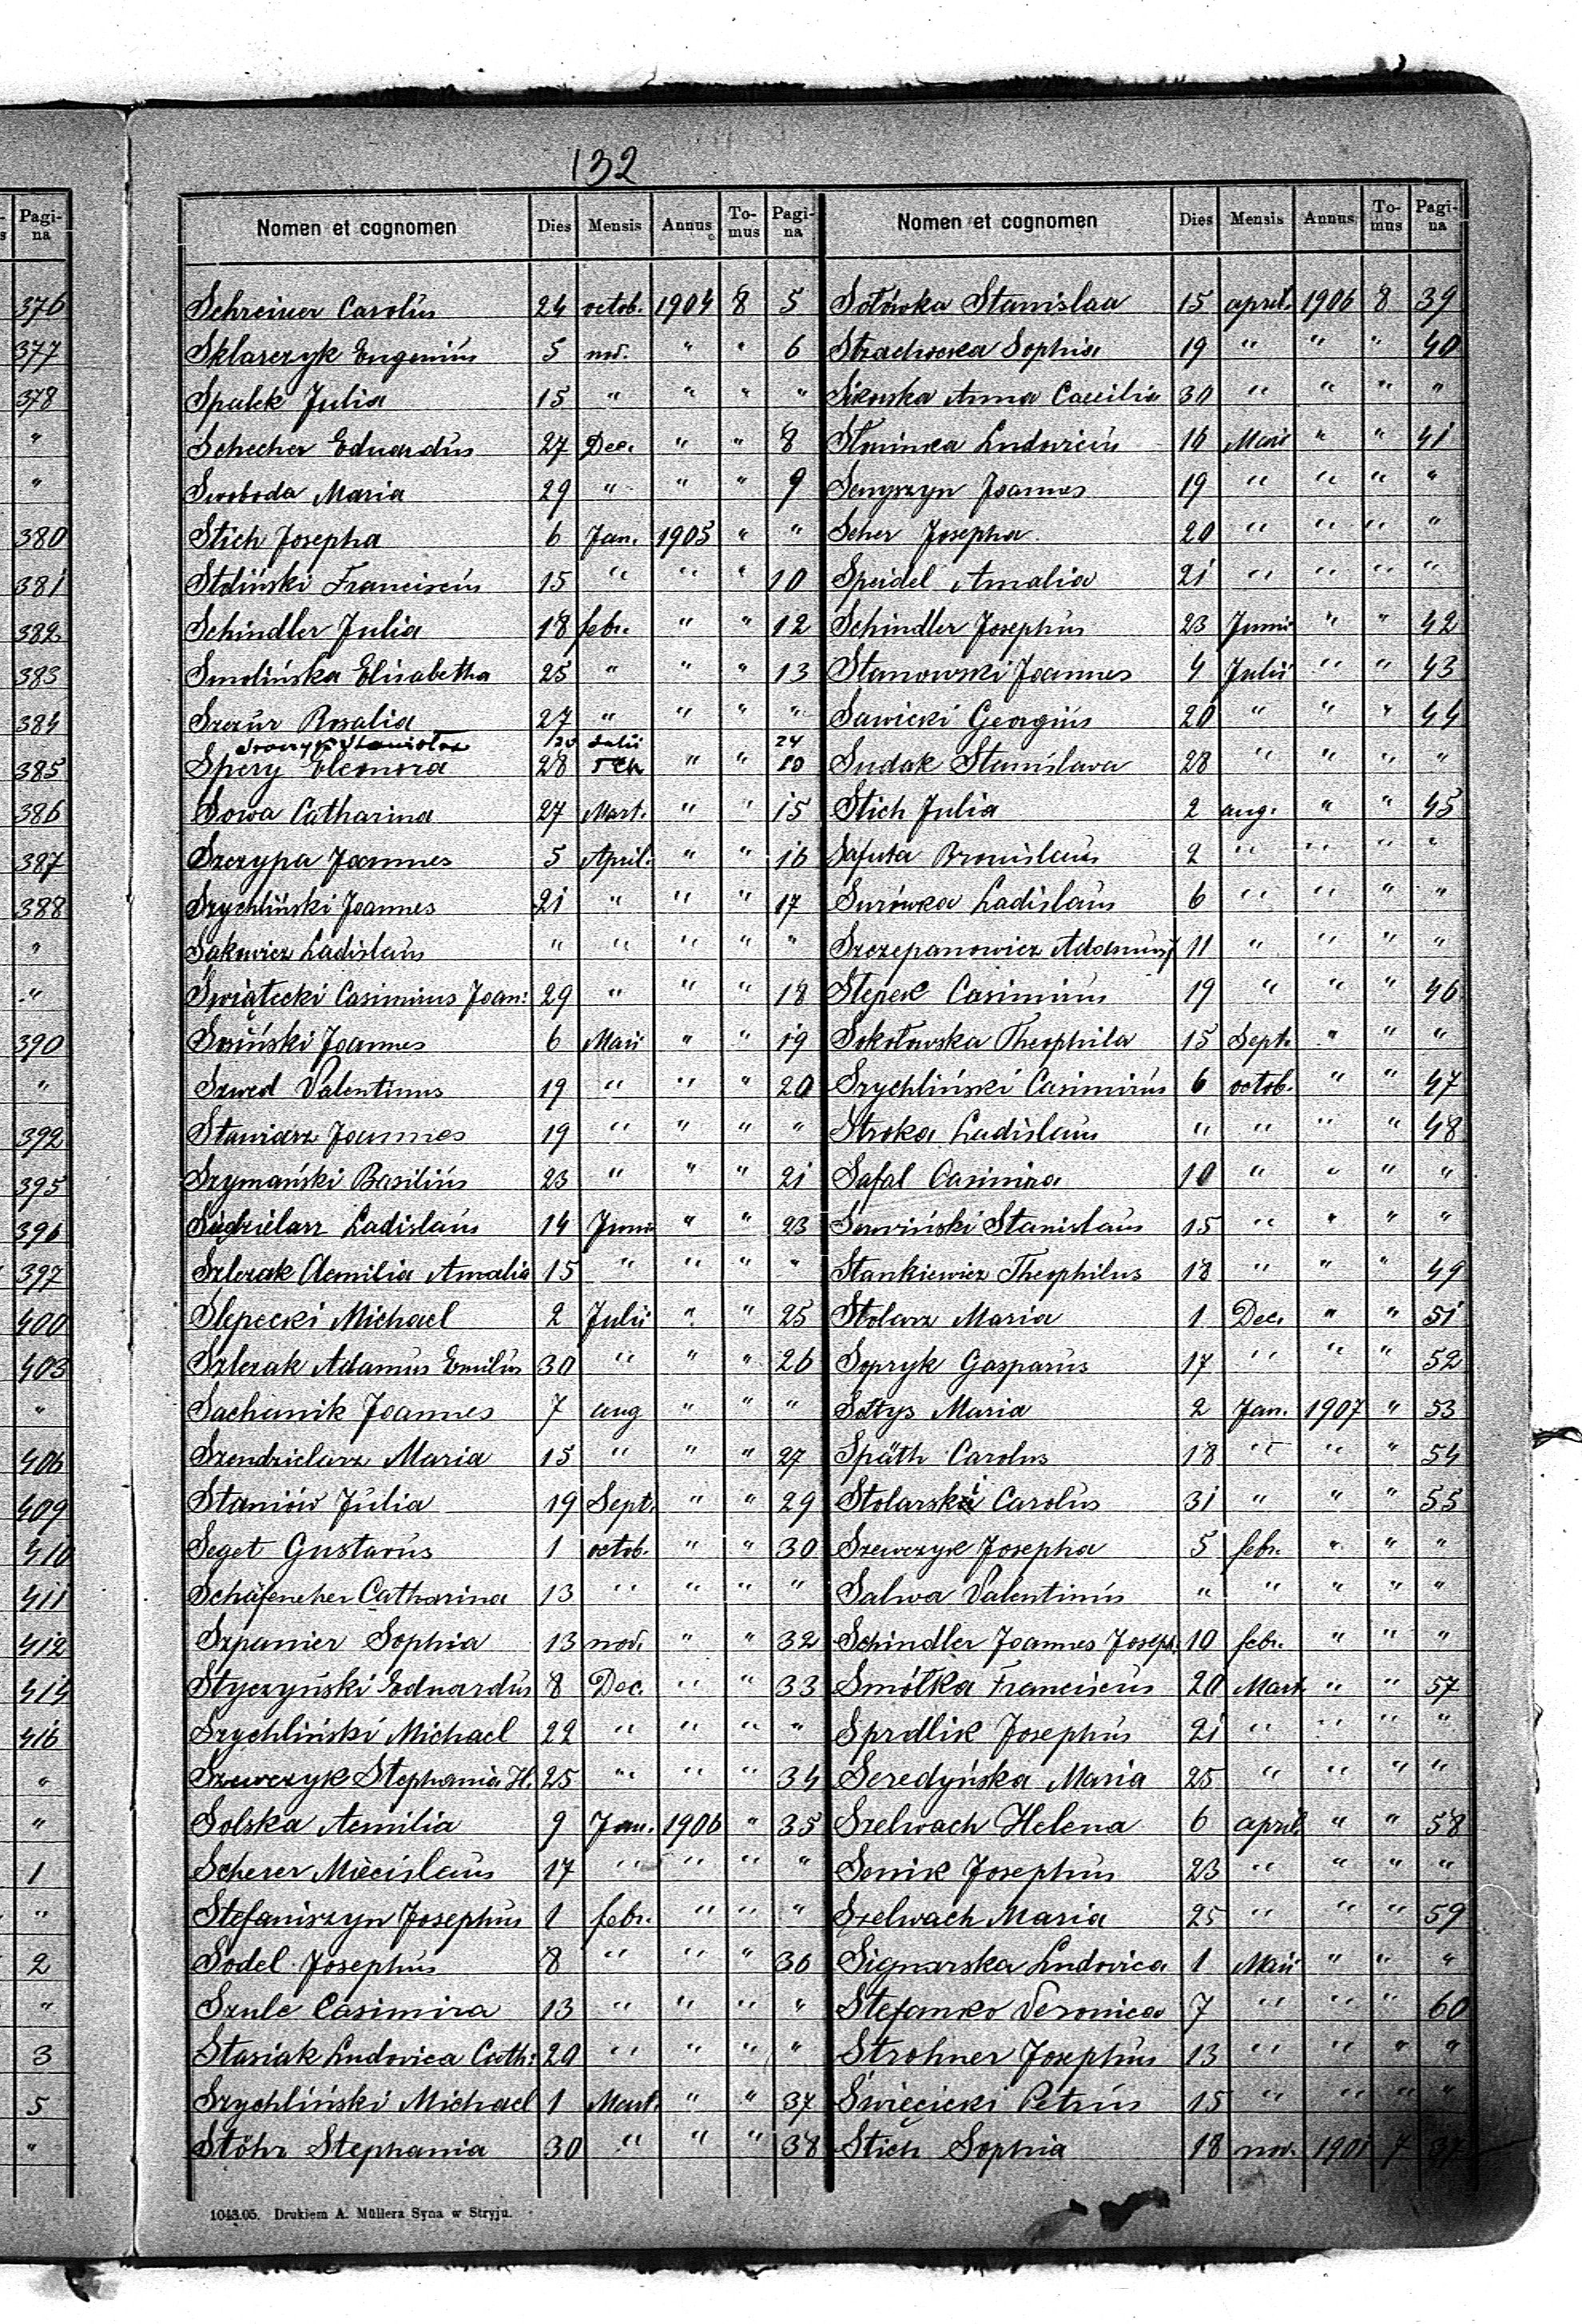 132
Pagi-
na
376
377
378
"
"
380
381
382
383
384
385
386
387
388
"
"
390
"
392
395
396
397
400
403
"
406
409
410
411
412
414
416
"
"
1
"
2
"
3
5
"
Nomen et cognomen Dies Mensis Annus To-mus Pagi-na
Schreiner Carolus 24 octob. 1904 8 5
Sklarczyk Eugenius 5 nov. " " 6
Spałek Julia 15 " " " "
Schecher Eduardus 27 Dec. " " 8
Swoboda Maria 29 " " " 9
Stich Josepha 6 Jan. 1905 " "
Stoliński Franciscus 15 " " " 10
Schindler Julia 18 febr. " " 12
Smolińska Elisabetha 25 " " " 13
Szczur Rosalia 27 " " " "
Stanislaa Julii 24
Spery Eleonora 28 " " 10
Sowa Catharina 27 Mart. " " 15
Szczypa Joannes 5 April. " " 16
Szychliński Joannes 21 " " " 17
Sakowicz Ladislaus " " " " "
Swiątecki Casimirus Joan: 29 " " " 18
Sosiński Joannes 6 Maii " " 19
Szwed Valentinus 19 " " " 20
Staniarz Joannes 19 " " " "
Szymański Basilius 23 " " " 21
Ladislaus 14 Junii " " 23
Szlezak Aemilia Amalia 15 " " " "
Slepecki Michael 2 Julii " " 25
Szlezak Adamus Emilus 30 " " " 26
Sachanik Joannes 7 aug " " "
Szendzielarz Maria 15 " " " 27
Staniów Julia 19 Sept. " " 29
Seget Gustavus 1 octob. " " 30
Catharina 13 " " " "
Szpanier Sophia 13 nov. " " 32
Styczyński Eduardus 8 Dec. " " 33
Szychliński Michael 22 " " " "
Szewczyk Stephania H. 25 " " " 34
Solska Aemilia 9 Jan. 1906 " 35
Scherer Miecislaus 17 " " " "
Stefaniszyn Josephus 1 febr. " " "
Sodel Josephus 8 " " " 36
Szulc Casimira 13 " " " "
Stasiak Ludovica Cath: 20 " " " "
Szychliński Michael 1 Mart. " " 37
Stöhr Stephania 30 " " " 38
Nomen et cognomen Dies Mensis Annus To-mus Pagi-na
Sołówka Stanislaa 15 april. 1906 8 39
Strachocka Sophia 19 " " " 40
Sikorska Anna Caecilia 30 " " " "
Ludovicus 16 Maii " " 41
Senyszyn Joannes 19 " " " "
Scher Josepha 20 " " " "
Speidel Amalia 21 " " " "
Schindler Josephus 23 Junii " " 42
Stanowski Joannes 4 Julii " " 43
Sawicki Georgius 20 " " " 44
Sudak Stanislava 28 " " " "
Stich Julia 2 aug. " " 45
Safuta Bronislaus 2 " " " "
Surówka Ladislaus 6 " " " "
Szczepanowicz Adamus 11 " " " "
Slepek Casimirus 19 " " " 46
Sokołowska Theophila 15 Sept. " " "
Szychliński Casimirus 6 octob. " " 47
Stroka Ladislaus " " " " 48
Safal Casimira 10 " " " "
Stanislaus 15 " " " "
Stankiewicz Theophilus 18 " " " 49
Stolarz Maria 1 Dec. " " 51
Sopryk Gasparus 17 " " " 52
Sołtys Maria 2 Jan. 1907 " 53
Späth Carolus 18 " " " 54
Stolarski Carolus 31 " " " 55
Szewczyk Josepha 5 febr. " " "
Salwa Valentinus " " " " "
Schindler Joannes Joseph. 10 febr. " " "
Smółka Franciscus 20 Mart. " " 57
Sprdlik Josephus 21 " " " "
Seredyńska Maria 25 " " " "
Szelwach Helena 6 april. " " 58
Senik Josephus 23 " " " "
Szelwach Maria 25 " " " 59
Signarska Ludovica 1 Maii " " "
Stefanko Veronica 7 " " " 60
Strohner Josephus 13 " " " "
Święcicki Petrus 15 " " " "
Stich Sophia 18 nov. 1901 7 37
1043.05. Drukiem A. Müllera Syna w Stryju.